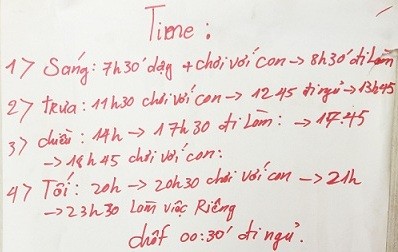 Time:
1> Sáng: 7h30' dậy + chơi với con → 8h30' đi Làm
2> trưa: 11h30 chơi với con → 12 45 đi ngủ → 13h45
3> chiều: 14h → 17h30 đi Làm: → 17:45
→ 18h45 chơi với con:
4> Tối: 20h → 20h30 chơi với con → 21h
→ 23h30 Làm việc Riêng
chốt 00:30' đi ngủ.